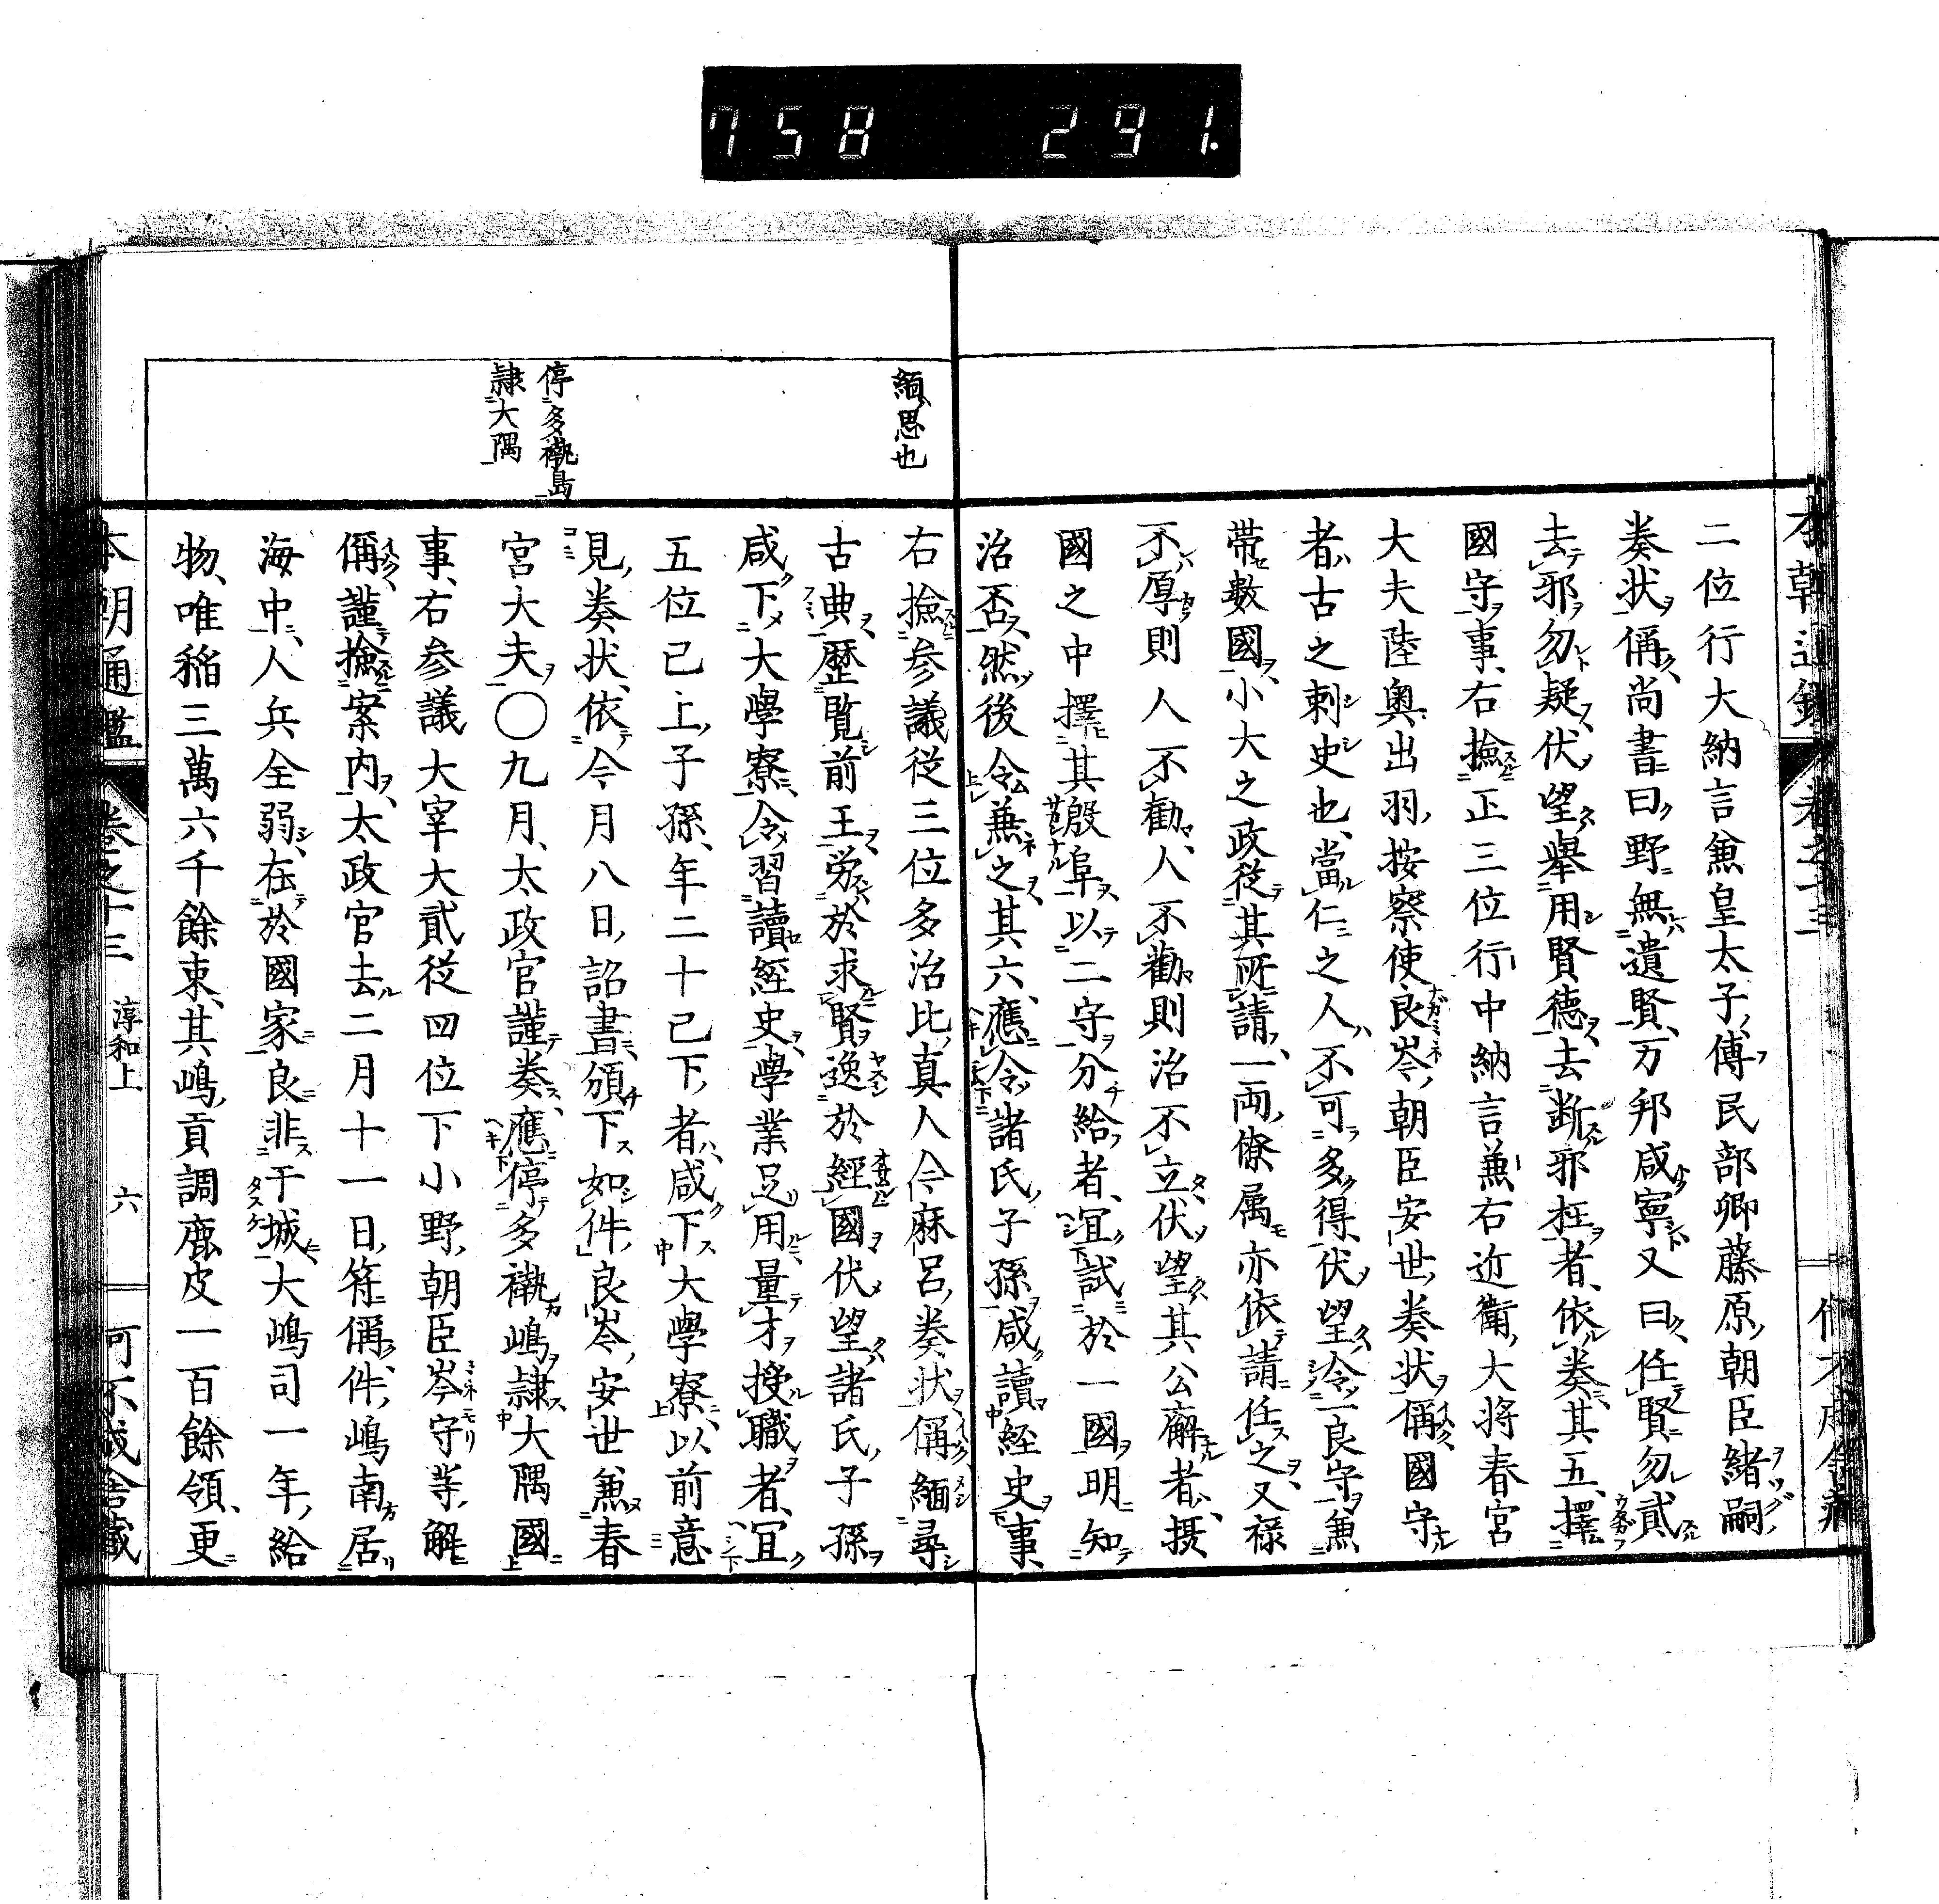 758 291.
二位行大納言兼皇太子傅民部卿藤原朝臣緒嗣
奏状偁尚書曰野無遺賢万邦咸寧又曰任賢勿貳
去邪勿疑伏望舉用賢德去断邪枉者依奏其五擇
國守事右撿正三位行中納言兼右近衛大将春宮
大夫陸奥出羽按察使良岑朝臣安世奏状偁國守
者古之刺史也當仁之人不可多得伏望冷一良守兼
帶數國小大之政從其所請一両僚属亦依請任之又禄
不厚則人不勸人不勸則治不立伏望其公廨者拱
國之中擇其殷阜以二守分給者宜試於一國明知
治否然後令兼之其六應令諸氏子孫咸讀経史事
緬思也
右撿参議從三位多治比真人今麻呂奏状偁緬尋
古典歴覧前王労於求賢逸於經國伏望諸氏子孫
咸下大學寮令習讀經史學業足用量才授職者宜
五位已上子孫年二十已下者咸下大學寮以前意
見奏状依今月八日詔書頒下如件良岑安世兼春
停多褹島
隷大隅
宮大夫〇九月太政官謹奏應停多褹嶋隷大隅國
事右参議大宰大貳從四位下小野朝臣岑守等解
偁謹撿案内太政官去二月十一日符偁件嶋南居
海中人兵全弱在於國家良非干城大嶋司一年給
物唯稲三萬六千餘束其嶋貢調鹿皮一百餘領更
本朝通鑑 卷之十三 淳和上 六